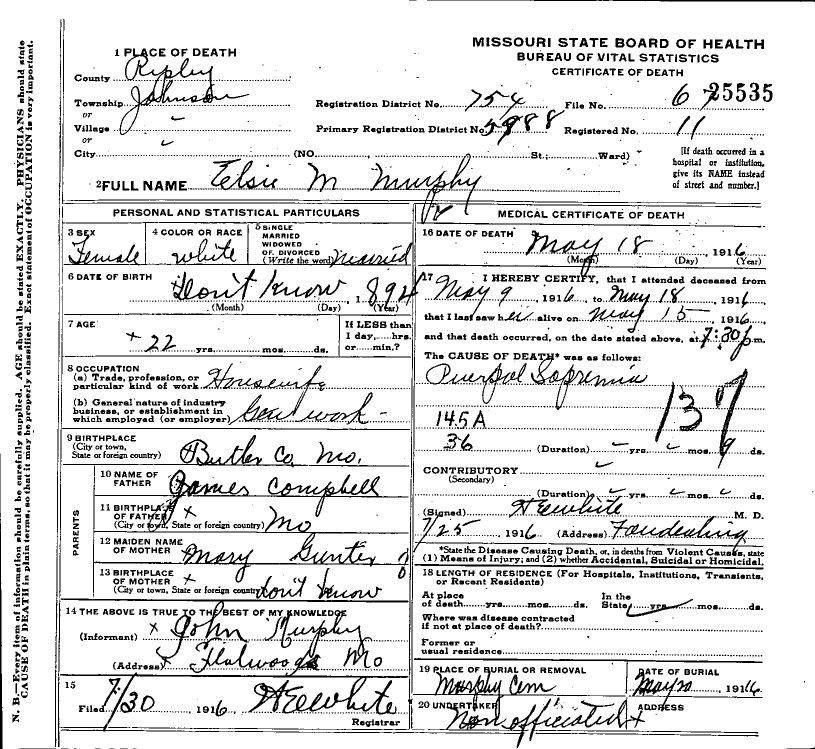 MISSOURI STATE BOARD OF HEALTH
BUREAU OF VITAL STATISTICS
CERTIFICATE OF DEATH
1 PLACE OF DEATH
County Ripley
Township Johnson
or
Village
or
City (NO. St.; Ward)
Registration District No. 754 File No. 6 25535
Primary Registration District No. 5988 Registered No. 11
[If death occurred in a
hospital or institution,
give its NAME instead
of street and number.]
2 FULL NAME Elsie M Murphy
PERSONAL AND STATISTICAL PARTICULARS
3 SEX Female
4 COLOR OR RACE white
5 SINGLE
MARRIED
WIDOWED
OR DIVORCED
(Write the word) married
6 DATE OF BIRTH Don't know , 1894
(Month) (Day) (Year)
7 AGE
+ 22 yrs. mos. ds.
If LESS than
1 day, hrs.
or min.?
8 OCCUPATION
(a) Trade, profession, or
particular kind of work Housewife
(b) General nature of industry
business, or establishment in
which employed (or employer) work -
9 BIRTHPLACE
(City or town,
State or foreign country) Butler Co, Mo.
PARENTS
10 NAME OF
FATHER James Compbell
11 BIRTHPLACE
OF FATHER x
(City or town, State or foreign country) Mo
12 MAIDEN NAME
OF MOTHER Mary Gunter
13 BIRTHPLACE
OF MOTHER x
(City or town, State or foreign country) don't know
14 THE ABOVE IS TRUE TO THE BEST OF MY KNOWLEDGE
(Informant) x John Murphy
(Address) x Flatwoods Mo
15
Filed 7/30 1916 H E White
Registrar
MEDICAL CERTIFICATE OF DEATH
16 DATE OF DEATH May 18 , 1916
(Month) (Day) (Year)
17 I HEREBY CERTIFY, that I attended deceased from
May 9 , 1916, to May 18 , 1916
that I last saw her alive on May 15 , 1916,
and that death occurred, on the date stated above, at 7:30 p m.
The CAUSE OF DEATH* was as follows:
Puerpal Sapremia
137
145A
36
(Duration) yrs. mos. 9 ds.
CONTRIBUTORY
(Secondary)
(Duration) yrs. mos. ds.
(Signed) H E White M. D.
7/25 , 1916 (Address)
*State the Disease Causing Death, or, in deaths from Violent Causes, state
(1) Means of Injury; and (2) whether Accidental, Suicidal or Homicidal.
18 LENGTH OF RESIDENCE (For Hospitals, Institutions, Transients,
or Recent Residents)
At place
of death yrs. mos. ds.
In the
State yrs. mos. ds.
Where was disease contracted
if not at place of death?
Former or
usual residence
19 PLACE OF BURIAL OR REMOVAL
Murphy Cem
DATE OF BURIAL
May 20 , 1916
20 UNDERTAKER
Non officiated x
ADDRESS
N. B.—Every item of information should be carefully supplied. AGE should be stated EXACTLY. PHYSICIANS should state
CAUSE OF DEATH in plain terms, so that it may be properly classified. Exact statement of OCCUPATION is very important.